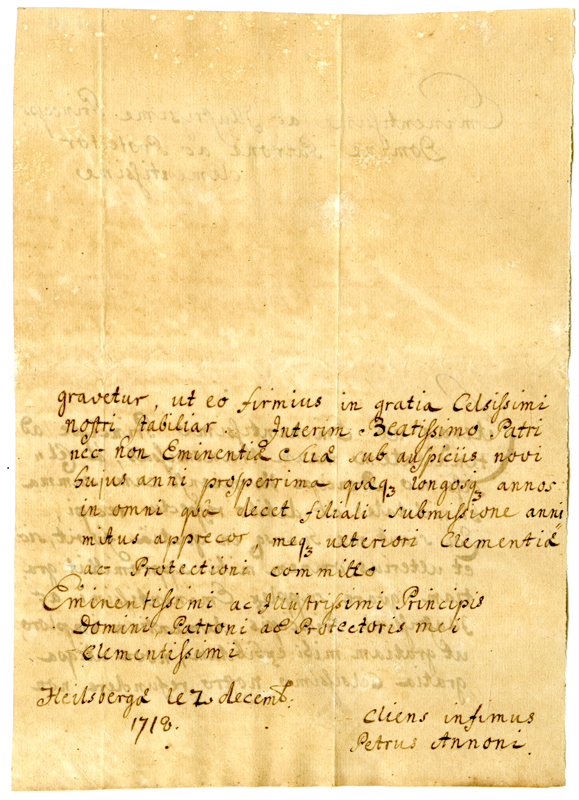 gravetur, ut eo firmius in gratia Celsissimi
nostri stabiliar. Interim Beatissimo Patri
nec non Eminentiæ Suæ sub auspiciis novi
hujus anni prosperrima quæqꝫ longosqꝫ annos
in omni quâ decet filiali submissione anni
mitus apprecor meqꝫ ulteriori Clementiæ
ac Protectioni committo
Eminentissimi ac Illustrissimi Principis
Domini Patroni ac Protectoris mei
Clementissimi
Heilsbergæ le 2 decemb.
1718.
Cliens infimus
Petrus Annoni.